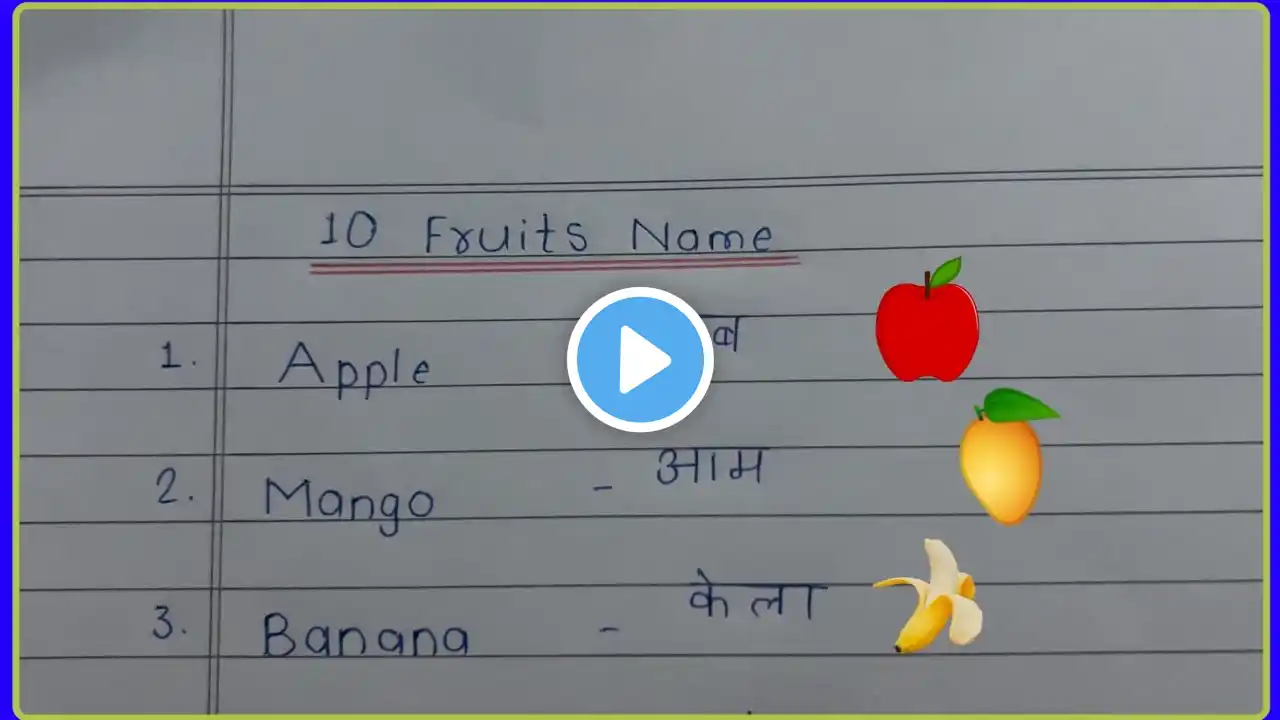 10 Fruits Name
1. Apple
2. Mango - आम
3. Banana - केला